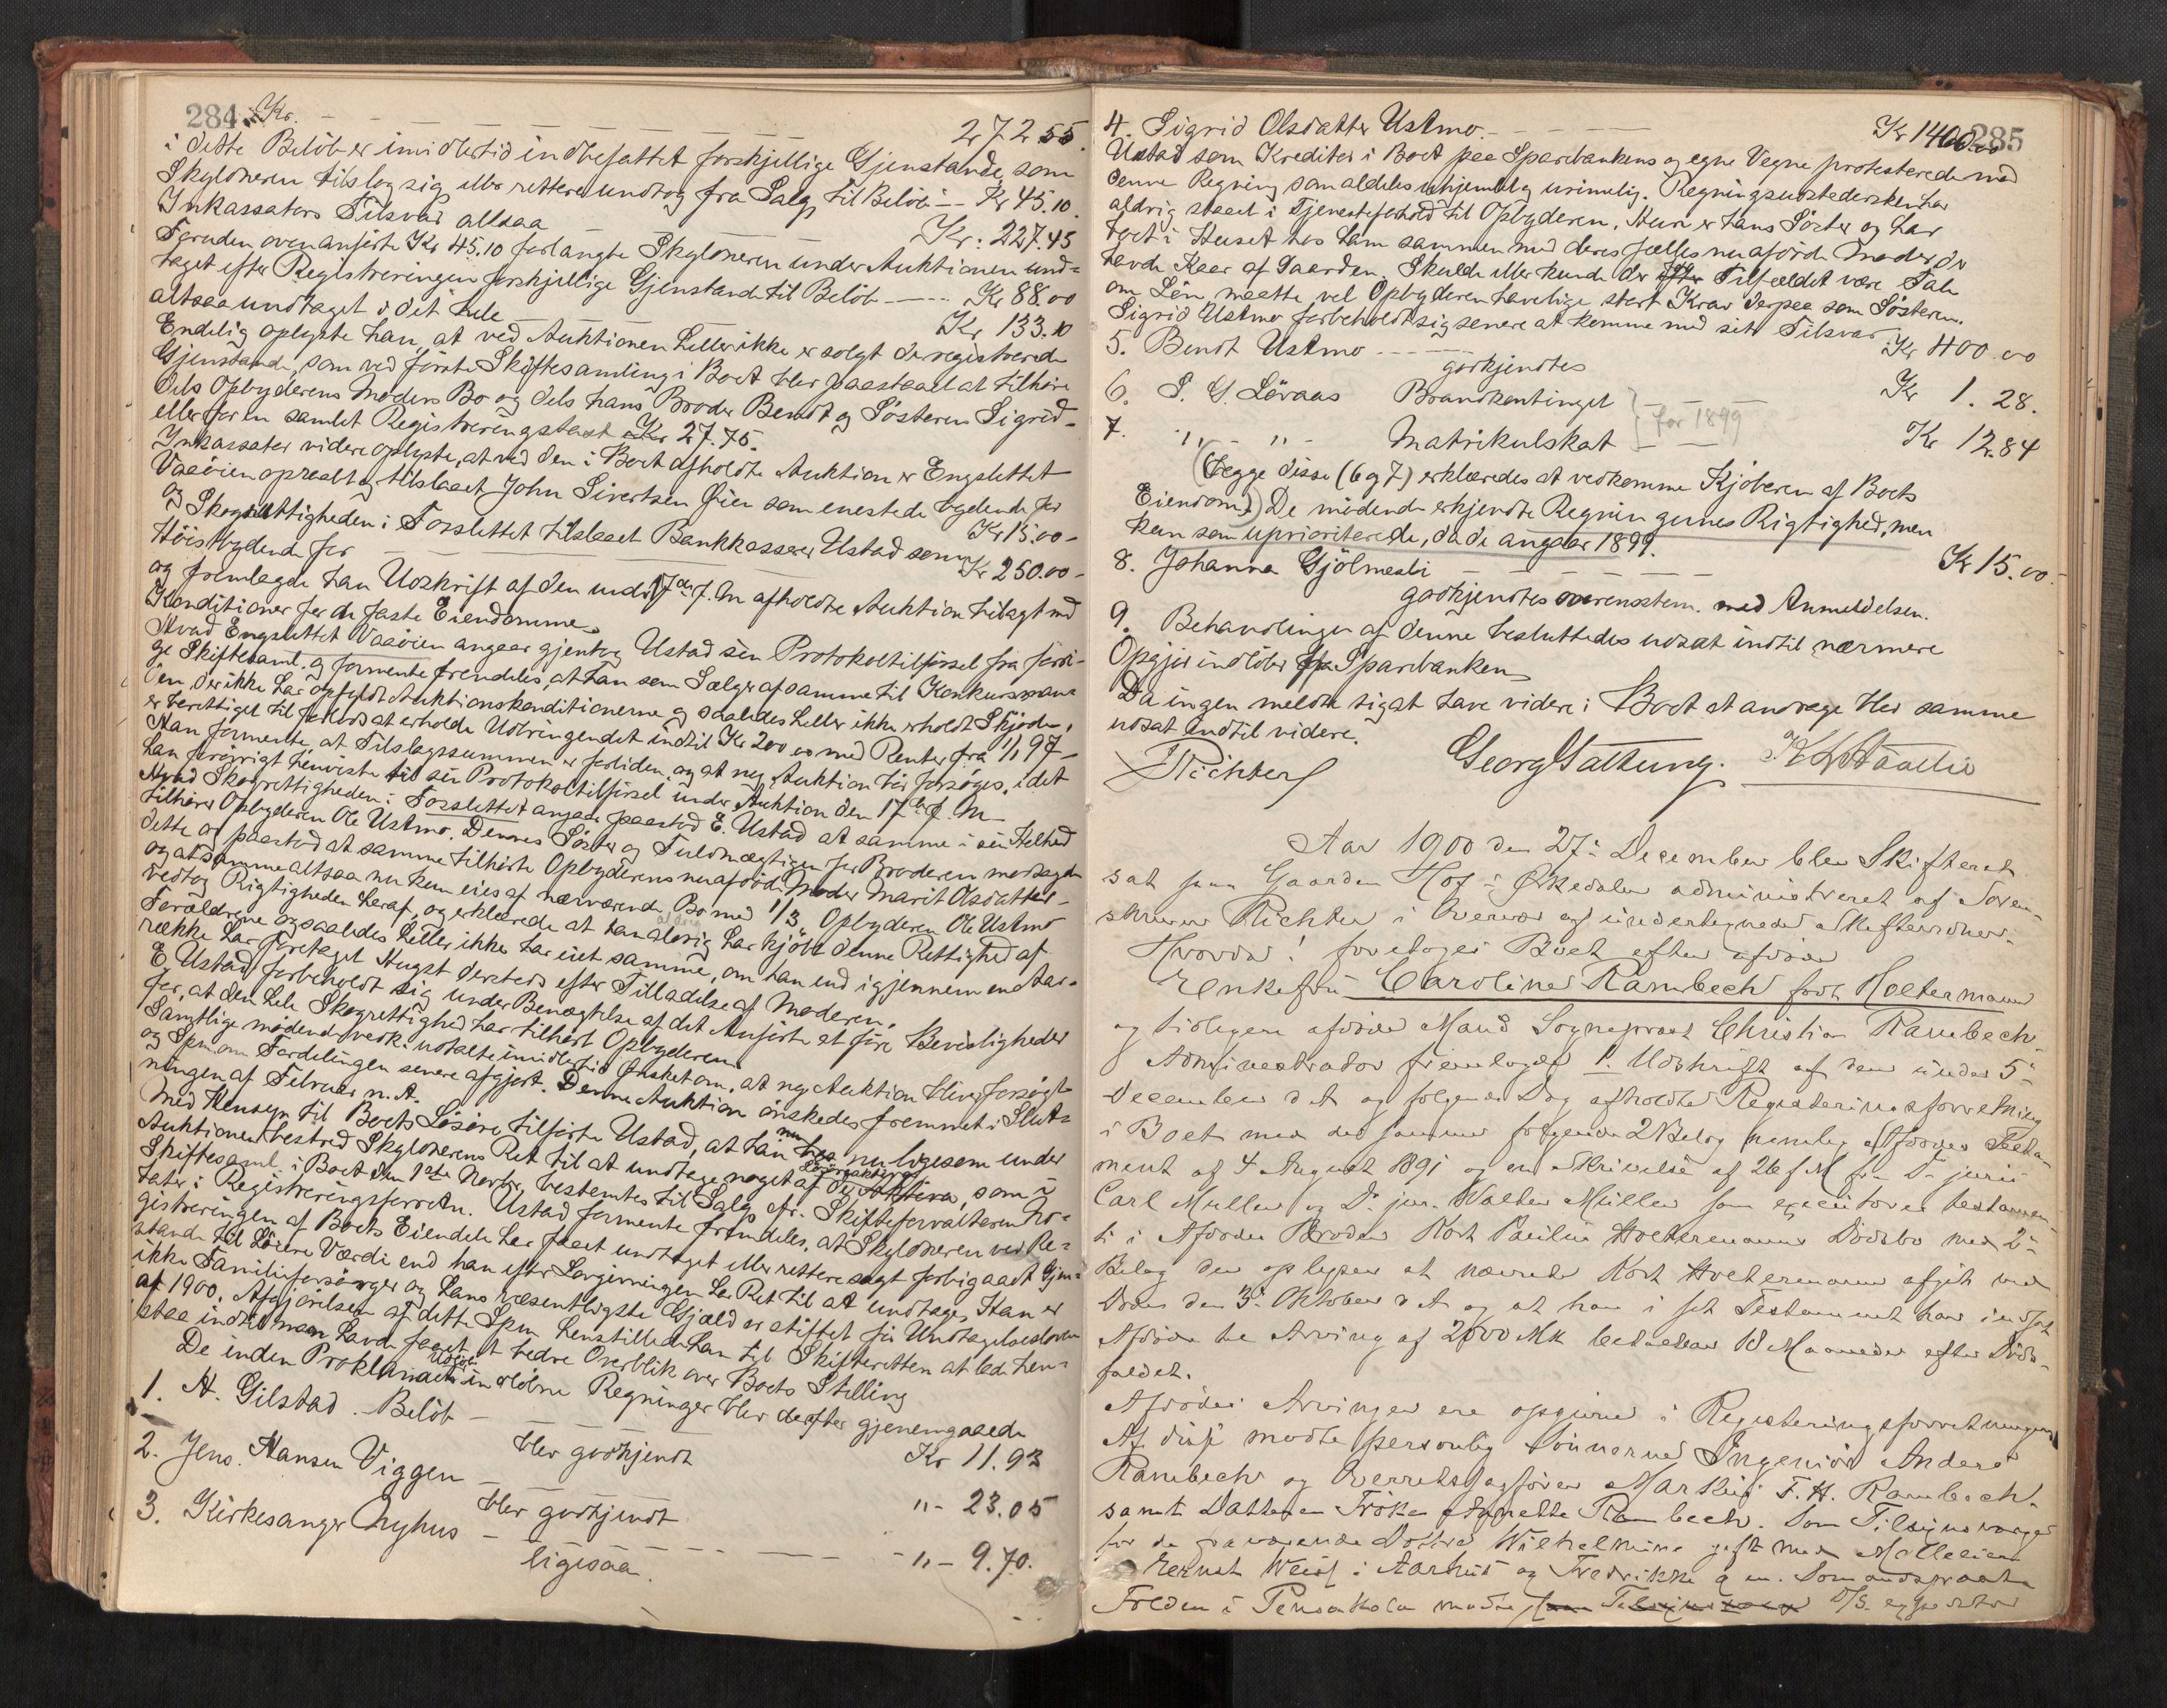 284
Kr. 272 55.
i dette Belöb er imidlertid indbefattet forskjellige Gjenstande, som
Skyldneren tilslog sig eller rettere undtog fra Salg, til Belöb Kr 45.10.
Inkassators Tilsvar altsaa Kr. 227.45
Foruden ovenanförte Kr 45.10 forlangte Skyldneren under Auktionen und-
taget efter Registreringen forskjellige Gjenstande til Belöb Kr 88.00
altsaa undtaget i det hele Kr 133.10
Endelig oplyste han, at ved Auktionen heller ikke er solgt de registrerede
Gjenstande, som ved förste Skiftesamling i Boet blev paastaaet at tilhöre
dels Opbyderens Moders Bo og dels hans Broder Bendt og Sösteren Sigrid -
eller for en samlet Registreringstaxt Kr 27.75.
Inkassator videre oplyste, at ved den i Boet afholdte Auktion er Engslettet
Vasöien opraabt og tilslaaet John Sivertsen Öien som eneste bydende for
Kr 15.00 -
og Skogrettigheden i Forslettet tilslaaet Bankkasserer Ustad som
Höistbydende for Kr 250.00 -
og fremlagde han Udskrift af den under 17de f. M. afholdte Auktion tilligemed
Konditioner for de faste Eiendomme.
Hvad Engslettet Vasöien angaar gjentog Ustad sin Protokoltilförsel fra forri-
ge Skiftesaml. og formente fremdeles, at han som Sælger af samme til Konkursman-
den, der ikke har opfyldt Auktionskonditionerne og saaledes heller ikke erholdt Skjöde,
er berettiget til forlods at erholde Udbringendet indtil Kr 200 00 med Renter fra 1/1 97 -
Han formente, at Tilslagssummen er forliden, og at ny Auktion bör forsöges, idet
han forövrigt henviste til sin Protokoltilförsel under Auktion den 17de f. M.
Hvad Skogrettigheden i Forslettet angaar paastod E. Ustad at samme i sin Helhed
tilhörer Opbyderen Ole Ustmo. Dennes Söster og Fuldmægtigen for Broderen modsagde
dette og paastod at samme tilhörte Opbyderens nu afdöde Moder Marit Olsdatter -
og at samme altsaa nu kun eies af nærværende Bo med 1/3. Opbyderen Ole Ustmo
vedtog Rigtigheden heraf, og erklærede at han aldrig har kjöbt denne Rettighed af
Forældrene og saaledes heller ikke har eiet samme, om han end igjennem en Aar-
række har foretaget Hugst dersteds efter Tilladelse af Moderen.
E. Ustad forbeholdt sig under Benægtelse af det Anförte at före Bevisligheder
for, at den hele Skogrettighed har tilhört Opbyderen.
Samtlige mödende vedk. udtalte imidlertid Önsket om, at ny Auktion bliver forsögt
og Spm. om Fordelingen senere afgjort. Denne Auktion önskedes fremmet i Slut-
ningen af Februar n. A.
Med Hensyn til Boets Lösöre tilförte Ustad, at han nu ligesom under
Auktionen bestred Skyldnerens Ret til at undtage noget af de Aktiva, som i
Skiftesaml. i Boet den 1ste Novbr. bestemtes til Salg, cfr. Skifteforvalterens No-
tater i Registreringsforretn. Ustad formente fremdeles, at Skyldneren ved Re-
gistreringen af Boets Eiendele har faaet undtaget eller rettere sagt forbigaaet Gjen-
stande til höiere Værdi end han efter Lovgivningen har Ret til at undtage, Han er
ikke Familieforsörger og hans væsentligste Gjæld er stiftet för Undtagelsesloven
af 1900. Afgjörelsen af dette Spm. henstillede han til Skifteretten at lade hen-
staa indtil man havde faaet et bedre Overblik over Boets Stilling
De inden Proklamaets Udlöb indlöbne Regninger blev derefter gjennemgaaede
1. A. Gilstad. Belöb Kr 11.93
blev godkjendt
2. Jens Hansen Viggen " - 23.05
blev godkjendt
3. Kirkesanger Nyhus " - 9.70.
ligesaa.
285
4. Sigrid Olsdatter Ustmo. Kr 1400.00
Ustad som Kreditor i Boet paa Sparebankens og egne Vegne protesterede mod
denne Regning som aldeles uhjemlet og urimelig. Regningsudstedersken har
aldrig staaet i Tjenesteforhold til Opbyderen. Hun er hans Söster og har
boet i Huset hos ham sammen med deres fælles nu afdöde Moder, der
havde Kaar af Gaarden. Skulde eller kunde der i Tilfældet være Tale
om Lön, maatte vel Opbyderen have lige stort Krav derpaa som Sösteren.
Sigrid Ustmo forbeholdt sig senere at komme med sit Tilsvar.
5. Bendt Ustmo Kr 400.00
godkjendtes
6. S. G. Löraas Brandkontingent Kr 1.28.
7. " - " - Matrikulskat } for 1899 Kr 12.84
(Begge disse (6 og 7) erklæredes at vedkomme Kjöberen af Boets
Eiendom.) De mödende erkjendte Regningernes Rigtighed, men
kun som uprioriterede, da de angaar 1899.
8. Johanna Gjölmesli Kr 15.00.
godkjendtes overensstem. med Anmeldelsen.
9. Behandlingen af denne besluttedes udsat indtil nærmere
Opgjör indlöber fra Sparebanken
Da ingen meldte sig at have videre i Boet at andrage blev samme
udsat indtil videre.
Richter Georg Sattung.
Aar 1900 den 27: December blev Skifteret
sat paa Gaarden Hof i Ørkedalen administreret af Soren-
skriver Richter i Overvær af undertegnede Skifteredner.
Hvorda! foretoges Boet efter afdöde
Enkefru Caroline Rambech född Holtermann
og tidligere afdöde Mand Sogneprest Christian Rambech.
Administrator fremlagde 1. Udskrift af den under 5:
December d A og fölgende Dag afholdte Registreringsforretning
i Boet med det samme fölgende 2 Bilag nemlig Afdödes Testa-
ment af 4 August 1891 og en Skrivelse af 26 f M fra Dr juris
Carl Müller og Dr. jur. Walter Müller som executores testamen-
ti i Afdödes Broder Kort Paulin Holtermanns Dödsbo med 2:
Bilag der oplyser at nævnte Kort Holtermann afgik ved
Döden den 3: Oktober d A og at han i sit Testament har indsat
Afdöde til Arving af 2000 Mk betalbar 18 Maaneder efter Döds-
faldet.
Afdödes Arvinger ere opgivne i Registreringsforretningen
Af disse mödte personlig Sönnerne Ingeniör Anders
Rambech og Overretssagförer Markus F. H. Rambech
samt Datteren Fröken Agnette Rambech. Som Tilsynsværge
for de fraværende Dötre Wilhelmine gift med
Ernst Weis i Aarhus og Fredrikke g m. Sömandsprest
Folden i Pensakola mödte